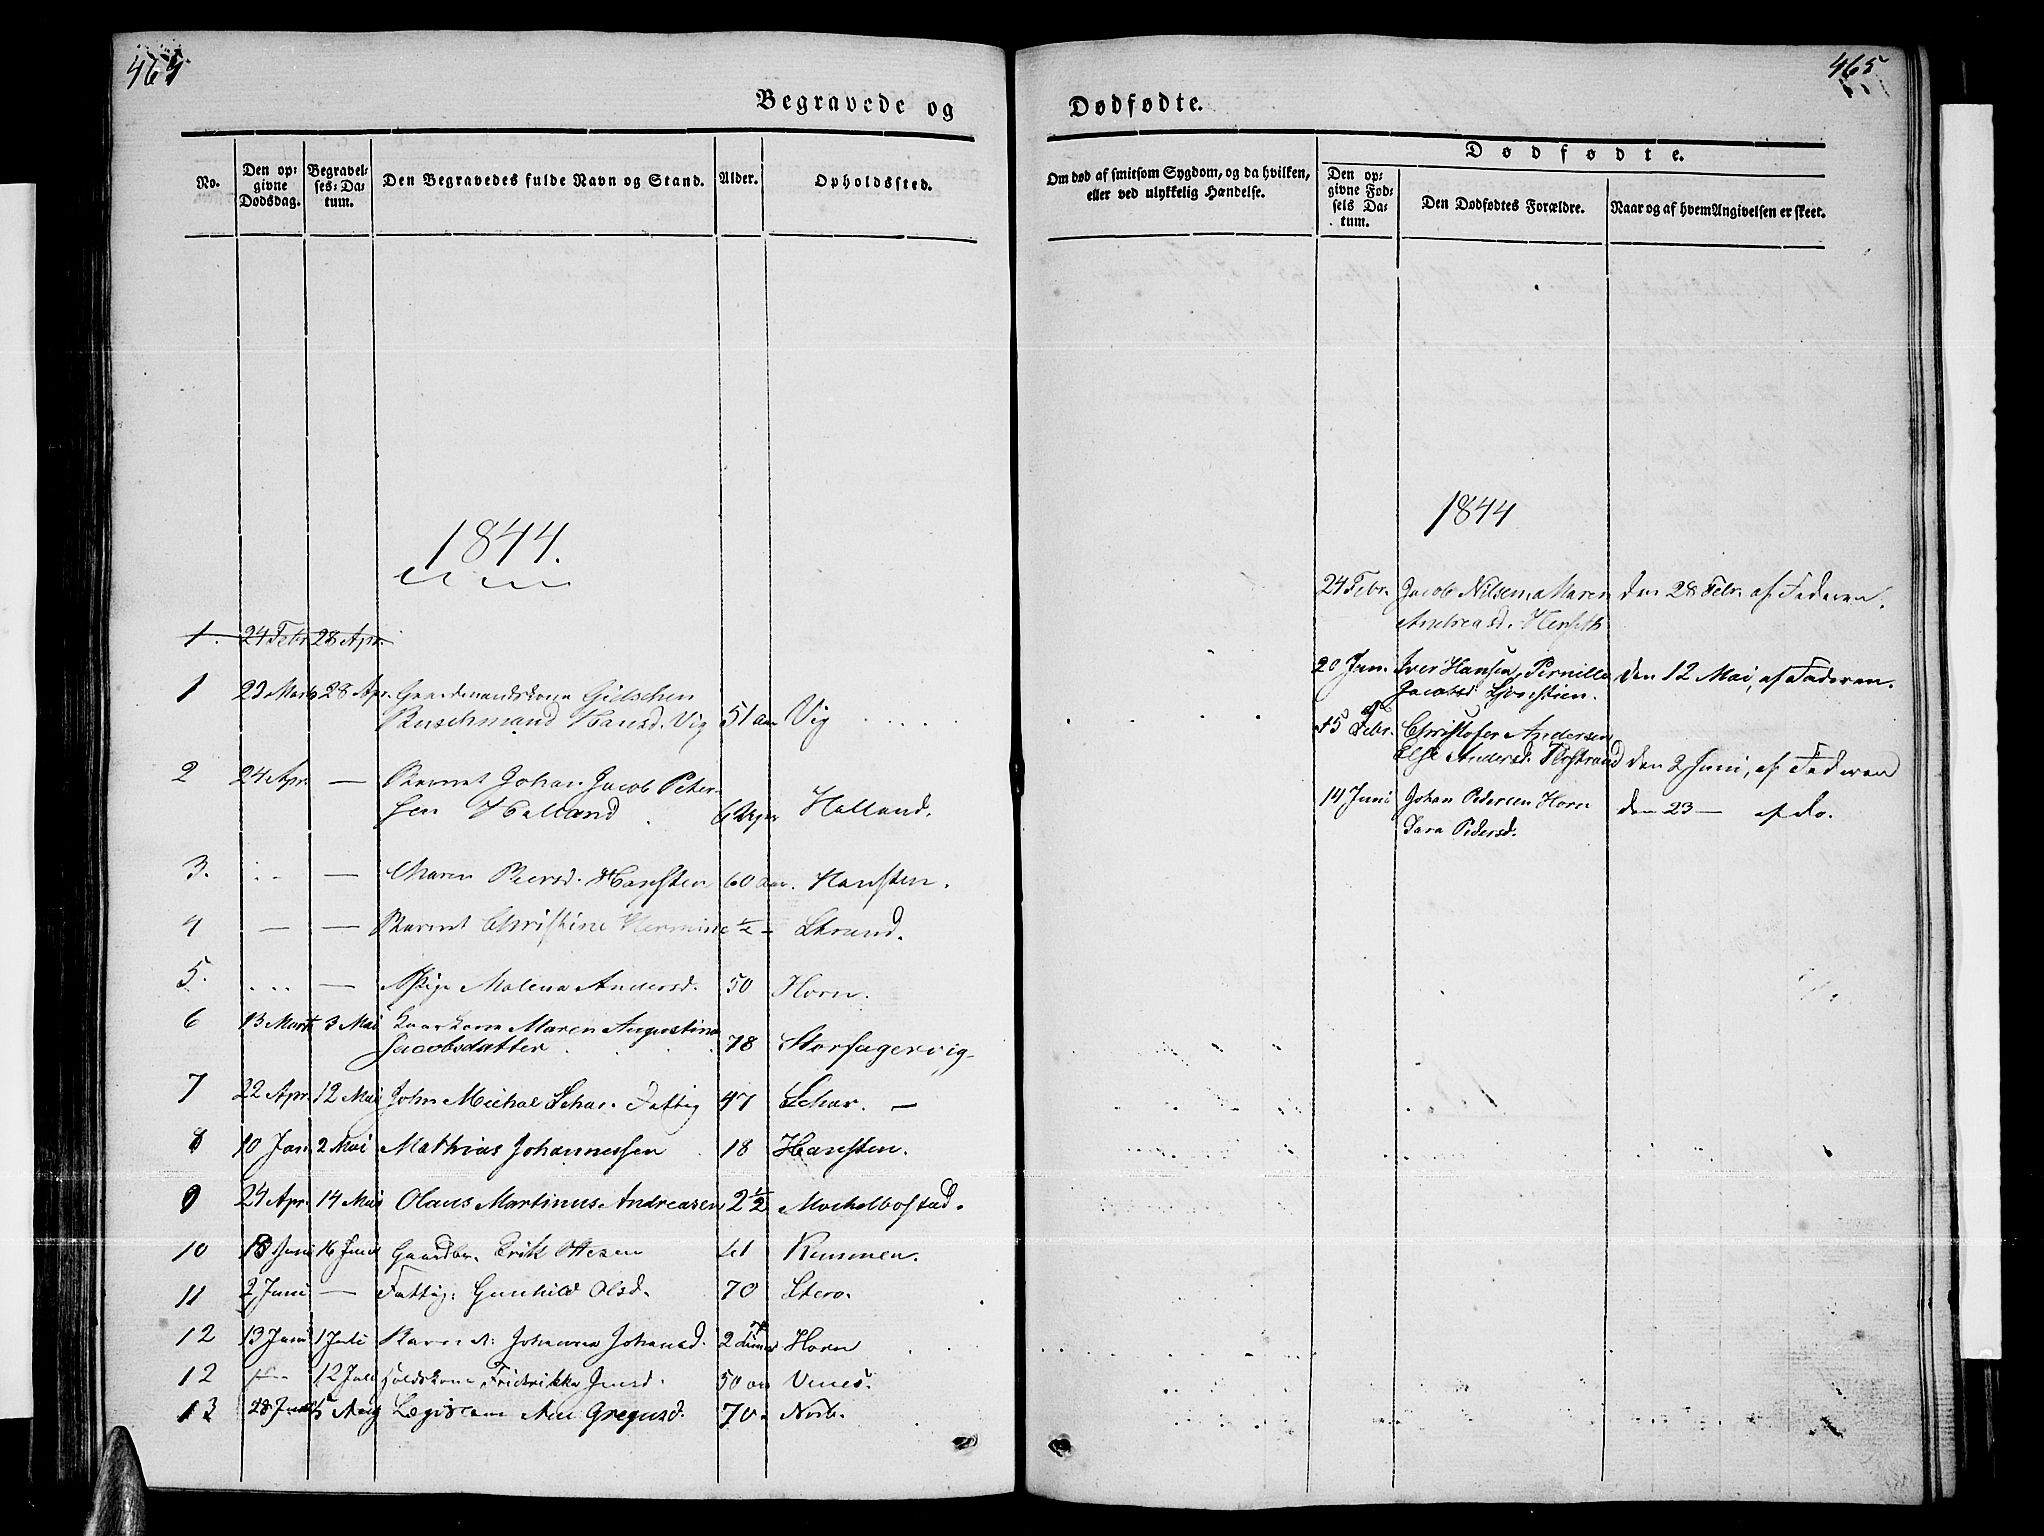 464
Begravede og
No.
Den op-
givne
Dødsdag.
Begravel-
ses-Da-
tum.
Den Begravedes fulde Navn og Stand.
Alder.
Opholdssted.
1844.
1. 24 Febr 28 Apr.
1 29 Marts 28 Apr. Gaardmandskone Gidschen
Buschmand Hansd. Vig 51 aar Vig
2 24 Apr. — Barnet Johan Jacob Peter-
sen Halland 6 Uger Halland.
3. — Maren Peersd. Hansten 60 aar. Hansten.
4 — — Barnet Christine Hermine ½ — Strand.
5. — Pige Malena Andersd. 50 Horn.
6 13 Marts 3 Mai Kaarkone Maren Augustina
Jacobsdatter 78 Storfagervig
7 22 Apr. 12 Mai John Michal Schar. Fattig 47 Schar. —
8 10 Jan 2 Mai Mathias Johannessen 18 Hansten.
9 24 Apr. 14 Mai Olaus Martinus Andreasen 2½ Mochelbostad.
10 18 Juni 16 Juni Gaardbr. Erik Ottesen 41 Remmen.
11 2 Juni — Fattig: Gunhild Olsd. 70 Stero.
12 13 Juni 1 Juli Barn A: Johanna Johansd. 2 Timer Horn
12 12 Juli Frederikke Jensd. 50 aar Vines.
13 28 Juni 5 Aug Legdskone Ane Gregusd. 70. Nord.
465
Dødfødte.
Om død af smitsom Sygdom, og da hvilken,
eller ved ulykkelig Hændelse.
Dødfødte.
Den op-
givne Fød-
sels Da-
tum.
Den Dødfødtes Forældre.
Naar og af hvem Angivelsen er skeet.
1844
24 Febr. Jacob Nilsen, Maren den 28 Febr. af Faderen.
Andreasd. Henseth
20 Jan. Iver Hansen, Pernille den 12 Mai, af Faderen.
Jacobsd
15 Febr. Christofer Andersen
Else Andersd. Hostrand den 2 Juni, af Faderen
14 Juni Johan Pedersen Horn den 23 — af do.
Sara Pedersd.